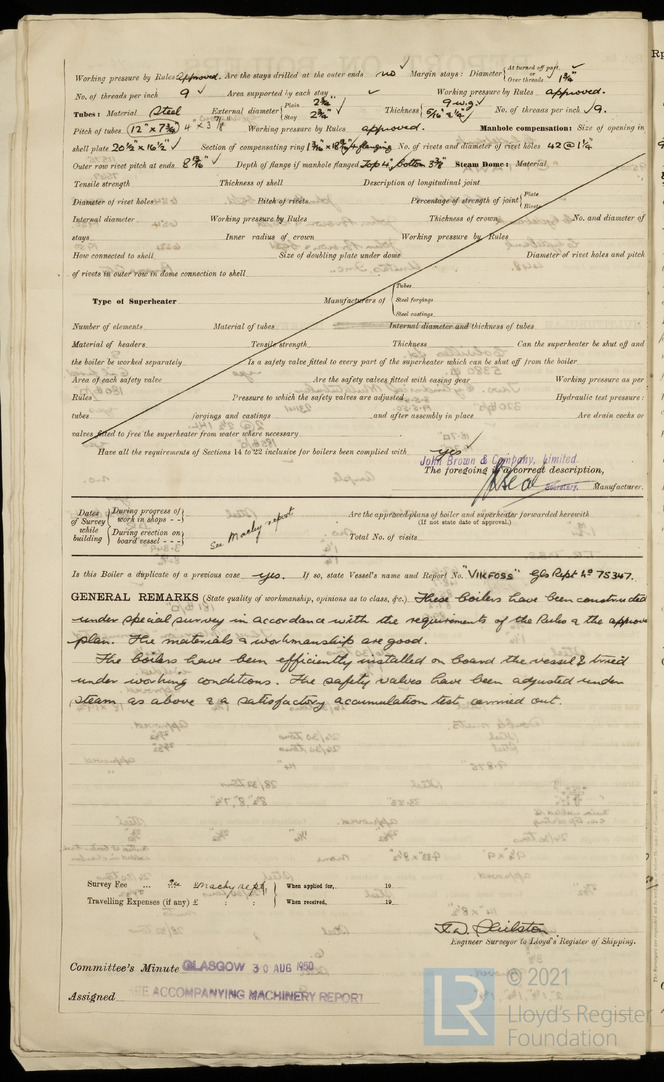 Working pressure by Rules Approved. Are the stays drilled at the outer ends no Margin stays: Diameter { At turned off part, or Over threads 1¾"
No. of threads per inch 9 Area supported by each stay Working pressure by Rules approved.
Tubes: Material Steel External diameter { Plain 2¾" Stay 2¾" Thickness { 9 w.g. 5/16" & ¼" No. of threads per inch 9.
Pitch of tubes (12" x 7¾") Working pressure by Rules approved. Manhole compensation: Size of opening in
shell plate 20½ x 16½" Section of compensating ring No. of rivets and diameter of rivet holes 42 @ 1¼
Outer row rivet pitch at ends Depth of flange if manhole flanged Top 4", bottom 3⅞" Steam Dome: Material
Tensile strength Thickness of shell Description of longitudinal joint
Diameter of rivet holes Pitch of rivets Percentage of strength of joint { Plate Rivets
Internal diameter Working pressure by Rules Thickness of crown No. and diameter of
stays Inner radius of crown Working pressure by Rules
How connected to shell Size of doubling plate under dome Diameter of rivet holes and pitch
of rivets in outer row in dome connection to shell
Type of Superheater Manufacturers of { Tubes Steel forgings Steel castings
Number of elements Material of tubes Internal diameter and thickness of tubes
Material of headers Tensile strength Thickness Can the superheater be shut off and
the boiler be worked separately Is a safety valve fitted to every part of the superheater which can be shut off from the boiler
Area of each safety valve Are the safety valves fitted with easing gear Working pressure as per
Rules Pressure to which the safety valves are adjusted Hydraulic test pressure:
tubes forgings and castings and after assembly in place Are drain cocks or
valves fitted to free the superheater from water where necessary
Have all the requirements of Sections 14 to 22 inclusive for boilers been complied with yes
John Brown & Company, Limited.
The foregoing is a correct description,
Secretary. Manufacturer.
Dates of Survey while building { During progress of work in shops - - During erection on board vessel - - - } See Machy report
Are the approved plans of boiler and superheater forwarded herewith
(If not state date of approval.)
Total No. of visits
Is this Boiler a duplicate of a previous case yes. If so, state Vessel's name and Report No. "VIKFOSS" Gls Rept No 75347.
GENERAL REMARKS (State quality of workmanship, opinions as to class, &c.) These boilers have been constructed
under special survey in accordance with the requirements of the Rules & the approved
plan. The materials & workmanship are good.
The boilers have been efficiently installed on board the vessel & tried
under working conditions. The safety valves have been adjusted under
steam as above & a satisfactory accumulation test carried out.
Survey Fee ... See Machy rept When applied for, 19
Travelling Expenses (if any) £ : : When received, 19
Engineer Surveyor to Lloyd's Register of Shipping.
Committee's Minute GLASGOW 30 AUG 1950
Assigned SEE ACCOMPANYING MACHINERY REPORT
© 2021
LR Lloyd's Register
Foundation